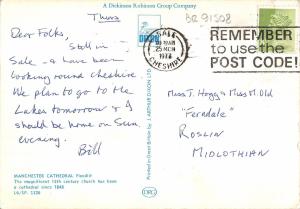 A Dickinson Robinson Group Company
BR91508
Thurs
Dear Folks,
Still in
Sale - & have been
looking round Cheshire.
We plan to go to the
Lakes tomorrow & I
should be home on Sun.
evening.
Bill
MANCHESTER CATHEDRAL Floodlit
The magnificent 15th century church has been
a cathedral since 1848
Printed in Great Britain by J. ARTHUR DIXON LTD
DRG
SALE
CHESHIRE
REMEMBER
to use the
POST CODE!
Miss T. Hogg & Miss M. Old
"Ferndale"
ROSLIN
MIDLOTHIAN